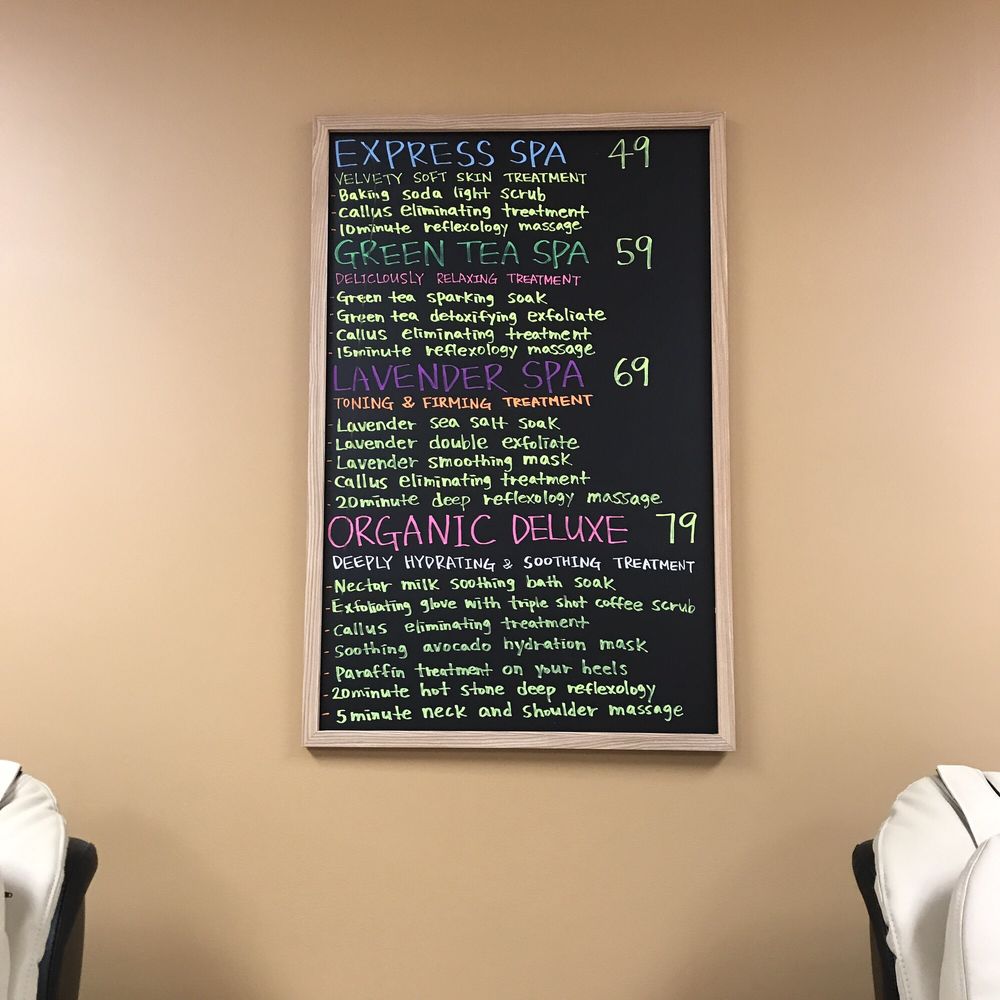 EXPRESS SPA 49
VELVETY SOFT SKIN TREATMENT
- Baking soda light scrub
- Callus eliminating treatment
- 10minute reflexology massage
GREEN TEA SPA 59
DELICIOUSLY RELAXING TREATMENT
- Green tea sparking soak
- Green tea detoxifying exfoliate
- Callus eliminating treatment
- 15minute reflexology massage
LAVENDER SPA 69
TONING & FIRMING TREATMENT
- Lavender sea salt soak
- Lavender double exfoliate
- Lavender smoothing mask
- Callus eliminating treatment
- 20minute deep reflexology massage
ORGANIC DELUXE 79
DEEPLY HYDRATING & SOOTHING TREATMENT
- Nectar milk soothing bath soak
- Exfoliating glove with triple shot coffee scrub
- Callus eliminating treatment
- Soothing avocado hydration mask
- Paraffin treatment on your heels
- 20minute hot stone deep reflexology
- 5minute neck and shoulder massage